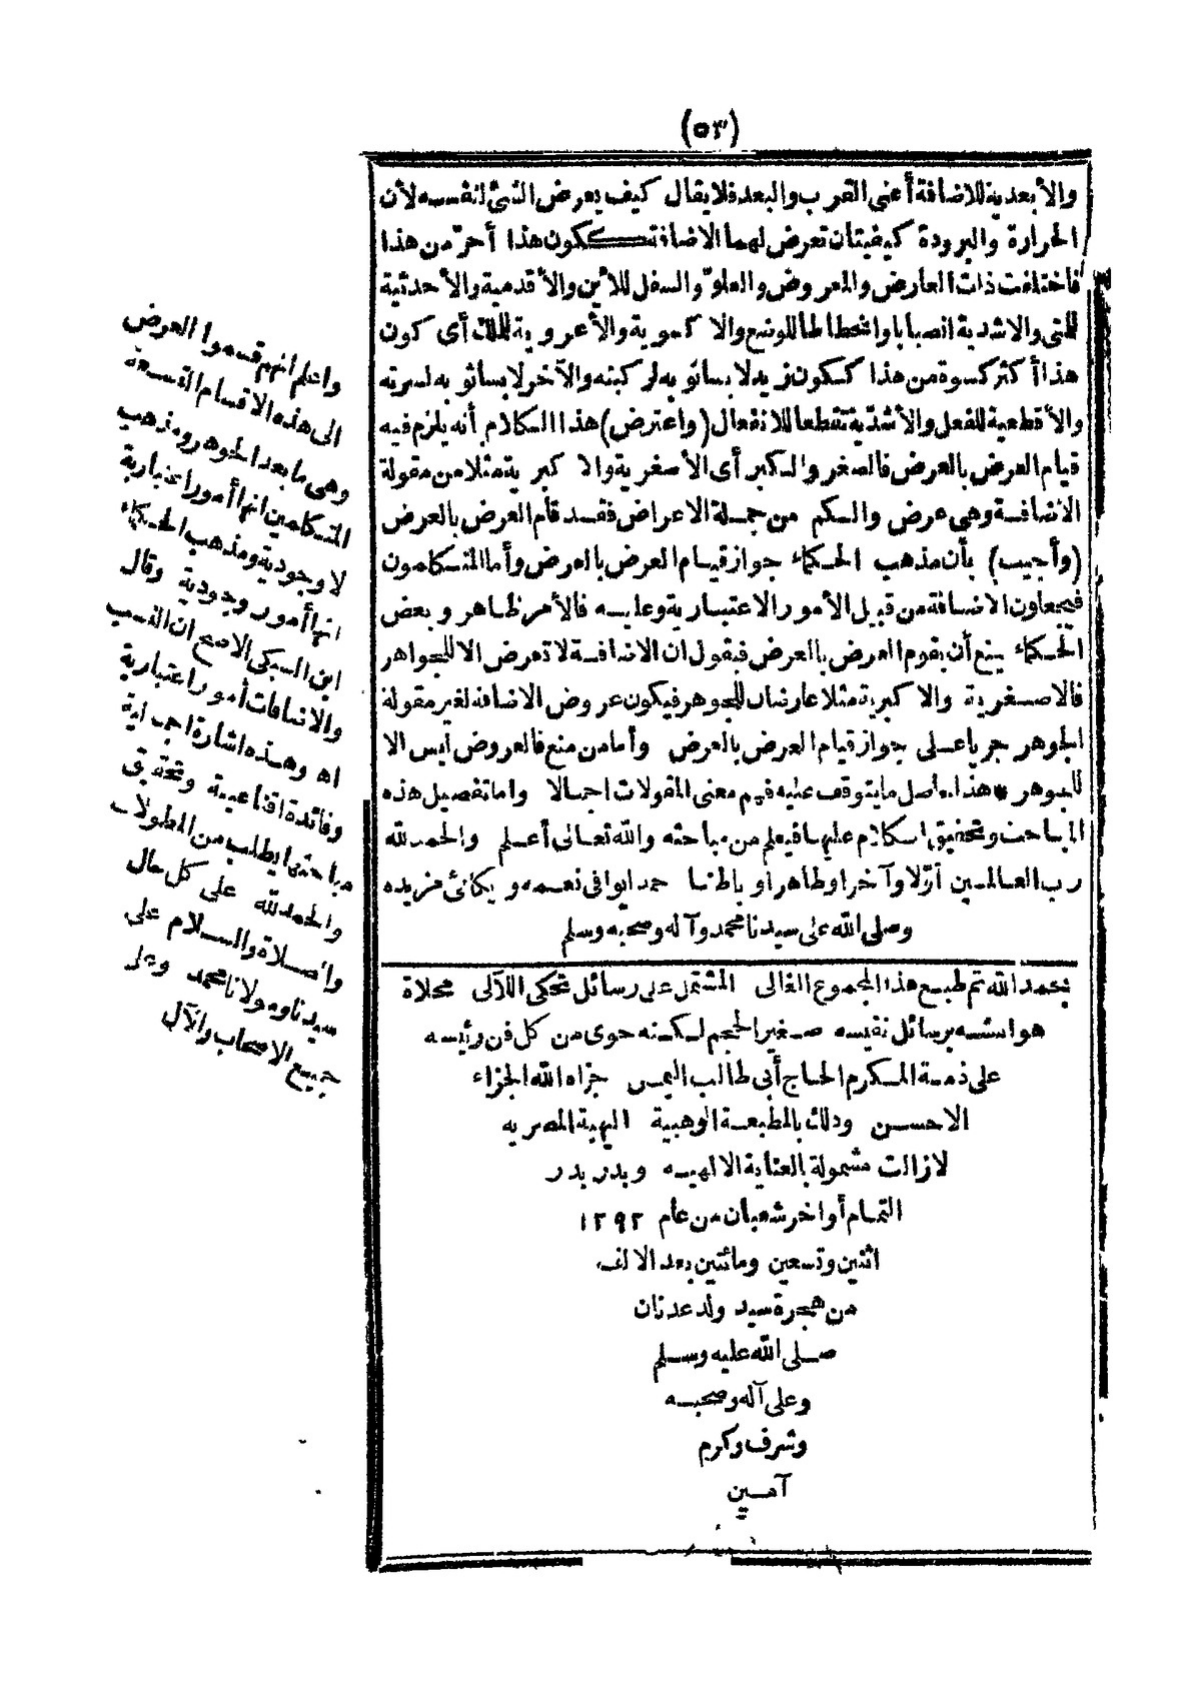 (٥٣)
والأبعدية للاضافة أعنى القرب والبعد فلا يقال كيف يعرض الشئ لنفسه لأن
الحرارة والبرودة كيفيتان تعرض لهما الاضافة ككون هذا أحرّ من هذا
فاختلفت ذات العارض والمعروض والعلوّ والسفل للأين والأقدمية والأحدثية
للمتى والاشدية انصبابا وانحطاطا للوضع والا كسوية والأعروية للملك أى كون
هذا أكثر كسوة من هذا ككون زيد لابسا ثوبه لركبته والآخر لابسا ثوبه لسرته
والأقطعية للفعل والأشدّية تقطعا للانفعال (واعترض) هذا الكلام أنه يلزم فيه
قيام العرض بالعرض فالصغر والكبر أى الأصغرية والا كبرية مثلا من مقولة
الاضافة وهى عرض والكم من جملة الاعراض فقد قام العرض بالعرض
(وأجيب) بأن مذهب الحكماء جواز قيام العرض بالعرض وأما المتكلمون
فيجعلون الاضافة من قبيل الأمور الاعتبارية وعليه فالأمر ظاهر وبعض
الحكماء يمنع أن يقوم العرض بالعرض فيقول ان الاضافة لا تعرض الا للجواهر
فالاصغرية والا كبرية مثلا عارضان للجوهر فيكون عروض الاضافة لغير مقولة
الجوهر جريا على جواز قيام العرض بالعرض وأما من منع فالعروض ليس الا
للجوهر * هذا حاصل ما يتوقف عليه فهم معنى المقولات اجمالا واما تفصيل هذه
المباحث وتحقيق الكلام عليها فيعلم من مباحثه والله تعالى أعلم والحمد لله
رب العالمين أوّلا وآخرا وظاهرا وباطنا حمدا يوافى نعمه ويكافئ مزيده
وصلى الله على سيدنا محمد وآله وصحبه وسلم
بحمد الله تم طبع هذا المجموع الغالى المشتمل على رسائل تحكى اللآلى محلاة
هوامشه برسائل نفيسه صغير الحجم لكنه حوى من كل فن رئيسه
على ذمة المكرم الحاج أبى طالب الميمن جزاه الله الجزاء
الاحسن وذلك بالمطبعة الوهبية البهية المصريه
لازالت مشمولة بالعناية الالهيه وبدر بدر
التمام أواخر شعبان من عام ١٢٩٢
اثنين وتسعين ومائتين بعد الالف
من هجرة سيد ولد عدنان
صلى الله عليه وسلم
وعلى آله وصحبه
وشرف وكرم
آمين
واعلم انهم قسموا العرض
الى هذه الاقسام التسعة
وهى ما بعد الجوهر ومذهب
المتكلمين انها أمور اعتبارية
لا وجودية ومذهب الحكماء
انها أمور وجودية وقال
ابن السبكى الاصح ان النسب
والاضافات أمور اعتبارية
اه وهذه اشارة اجمالية
وفائدة اقناعية وتحقيق
مباحثها يطلب من المطولات
والحمد لله على كل حال
والصلاة والسلام على
سيدنا ومولانا محمد وعلى
جميع الاصحاب والآل